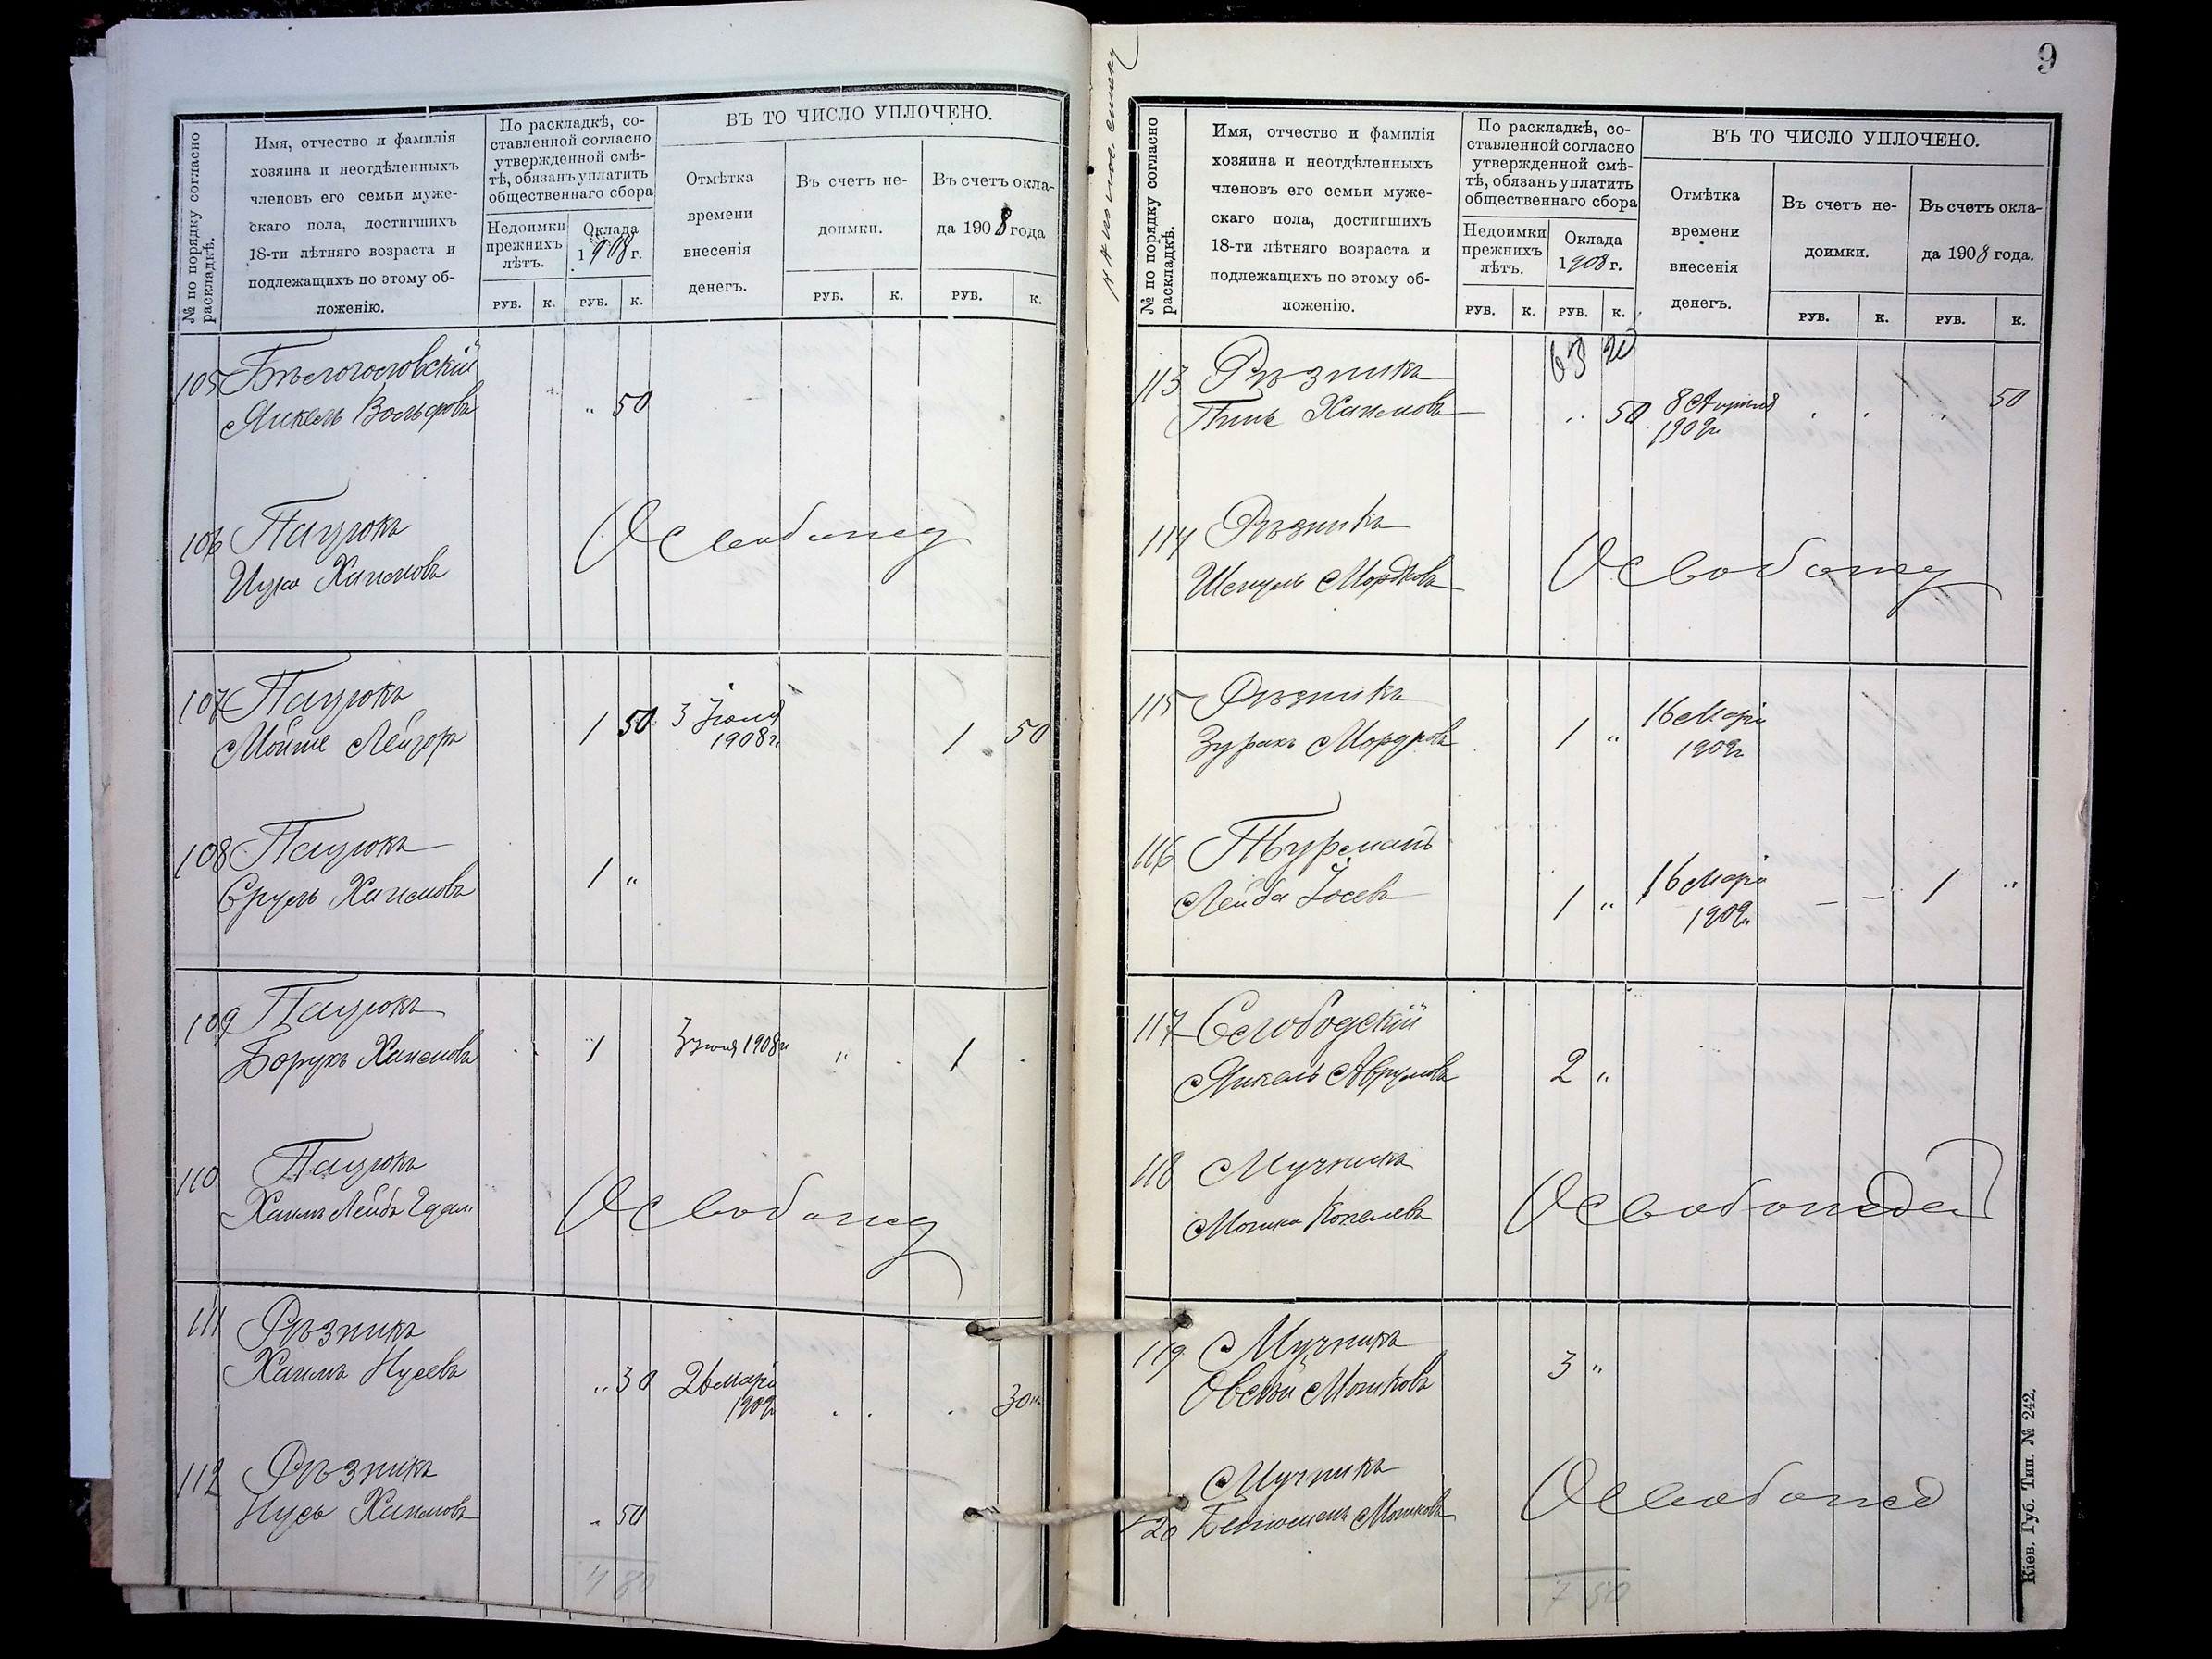 № по порядку согласно
раскладкѣ.
Имя, отчество и фамилія
хозяина и неотдѣленныхъ
членовъ его семьи муже-
скаго пола, достигшихъ
18-ти лѣтняго возраста и
подлежащихъ по этому об-
ложенію.
По раскладкѣ, со-
ставленной согласно
утвержденной смѣ-
тѣ, обязанъ уплатить
общественнаго сбора
Недоимки
прежнихъ
лѣтъ.
Оклада
1908 г.
РУБ. К. РУБ. К.
ВЪ ТО ЧИСЛО УПЛОЧЕНО.
Отмѣтка
времени
внесенія
денегъ.
Въ счетъ не-
доимки.
РУБ. К.
Въ счетъ окла-
да 1908 года
РУБ. К.
105 Бѣлогословскій
Янкель Вольфовъ „ 50
106 Пацюкъ
Хаимовъ Освобожд
107 Пацюкъ
Мойше Лейзоръ 1 50 3 Іюня 1 50
1908 г.
108 Пацюкъ
Сруль Хаимовъ 1 „
109 Пацюкъ
Борухъ Хаимовъ 1 3 іюня 1908 г „ 1
110 Пацюкъ
Хаимъ Лейбъ Гдал. Освобожд
111 Рѣзникъ
Хаимъ Нусевъ „ 30 26 Мар 30 к
1909
112 Рѣзникъ
Нусь Хаимовъ „ 50
4 80
9
№ по порядку согласно
раскладкѣ.
Имя, отчество и фамилія
хозяина и неотдѣленныхъ
членовъ его семьи муже-
скаго пола, достигшихъ
18-ти лѣтняго возраста и
подлежащихъ по этому об-
ложенію.
По раскладкѣ, со-
ставленной согласно
утвержденной смѣ-
тѣ, обязанъ уплатить
общественнаго сбора
Недоимки
прежнихъ
лѣтъ.
Оклада
1908 г.
РУБ. К. РУБ. К.
ВЪ ТО ЧИСЛО УПЛОЧЕНО.
Отмѣтка
времени
внесенія
денегъ.
Въ счетъ не-
доимки.
РУБ. К.
Въ счетъ окла-
да 1908 года.
РУБ. К.
63 20
113 Рѣзникъ
Хаимовъ „ 50 8 Апрѣля „ 50
1909 г
114 Рѣзникъ
Шмуль Мордковъ Освобожд
115 Рѣзникъ
1 „ 16 Мар
1909 г
116 Турманъ
Лейба Іосевъ 1 „ 16 Мар — — 1 „
1909 г
117 Слободскій
Янкель Аврумовъ 2 „
118 Мучникъ
Мошко Копелевъ Освобожден
119 Мучникъ
Овсѣй Мошковъ 3 „
120 Мучникъ
Мошковъ Освобожд
7 50
Кіев. Губ. Тип. № 242.